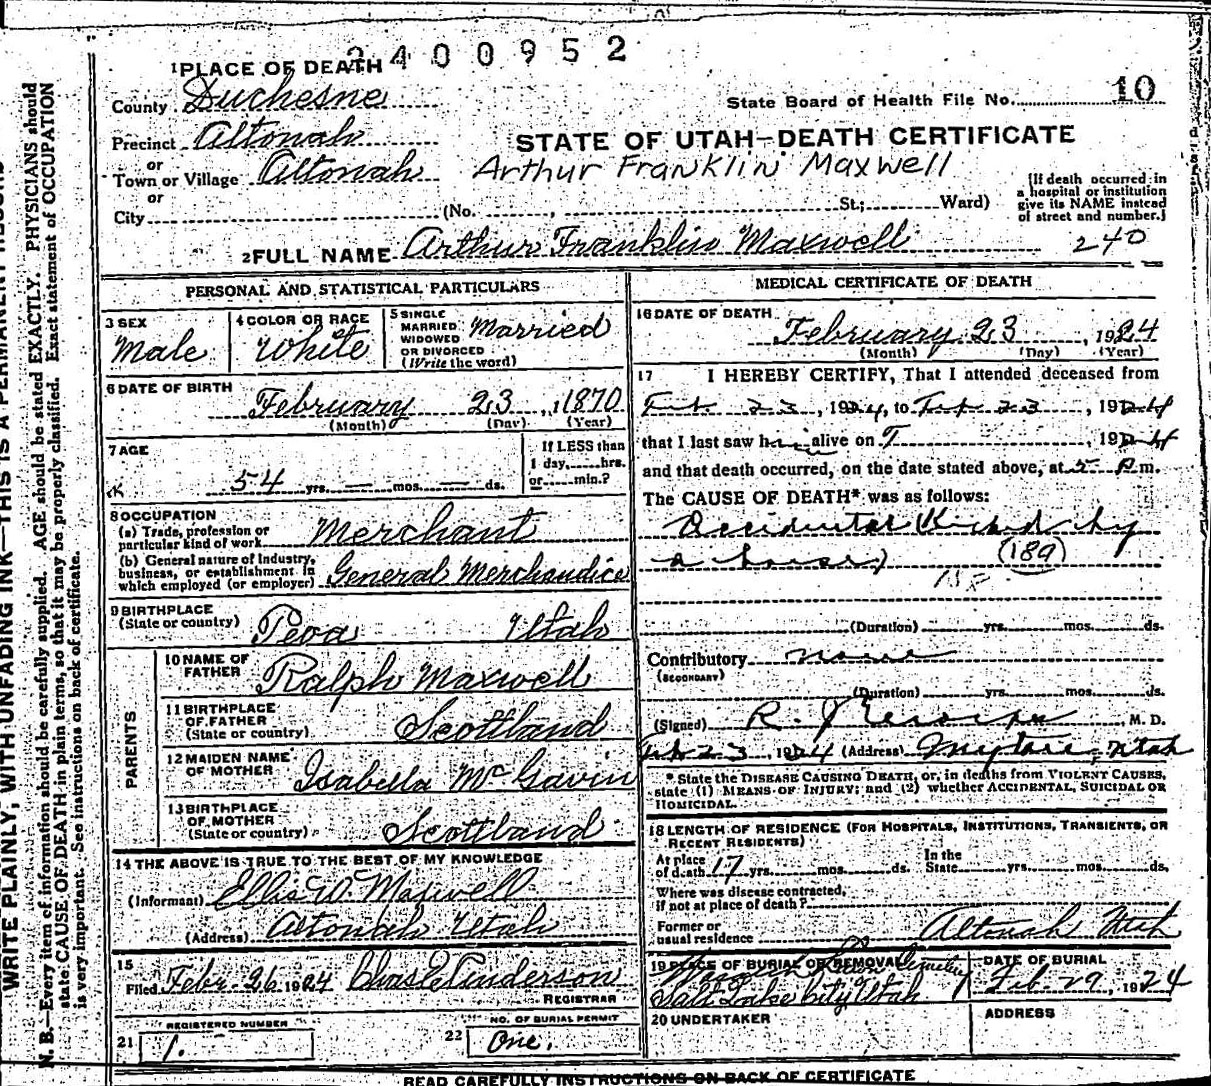 2400952
1 PLACE OF DEATH
County Duchesne
State Board of Health File No. 10
Precinct Altonah
STATE OF UTAH—DEATH CERTIFICATE
or
Town or Village Altonah
Arthur Franklin Maxwell
or
City (No. , St.; Ward)
[If death occurred in
a hospital or institution
give its NAME instead
of street and number.]
240
2 FULL NAME Arthur Franklin Maxwell
PERSONAL AND STATISTICAL PARTICULARS
3 SEX
Male
4 COLOR OR RACE
White
5 SINGLE
MARRIED
WIDOWED
OR DIVORCED
(Write the word)
Married
6 DATE OF BIRTH
February 23, 1870
(Month) (Day) (Year)
7 AGE
54 yrs. — mos. — ds.
If LESS than
1 day, hrs.
or min.?
8 OCCUPATION
(a) Trade, profession or
particular kind of work Merchant
(b) General nature of Industry,
business, or establishment in
which employed (or employer) General Merchandice
9 BIRTHPLACE
(State or country) Peoa Utah
PARENTS
10 NAME OF
FATHER Ralph Maxwell
11 BIRTHPLACE
OF FATHER
(State or country) Scottland
12 MAIDEN NAME
OF MOTHER Isabella McGavin
13 BIRTHPLACE
OF MOTHER
(State or country) Scottland
14 THE ABOVE IS TRUE TO THE BEST OF MY KNOWLEDGE
(Informant) Ellis W. Maxwell
(Address) Altonah Utah
15
Filed Febr. 26 1924
REGISTRAR
REGISTERED NUMBER
21 1.
NO. OF BURIAL PERMIT
22 One.
MEDICAL CERTIFICATE OF DEATH
16 DATE OF DEATH
February 23, 1924
(Month) (Day) (Year)
17 I HEREBY CERTIFY, That I attended deceased from
Feb. 23, 1924, to Feb. 23, 1924
that I last saw him alive on , 1924
and that death occurred, on the date stated above, at 5 P.m.
The CAUSE OF DEATH* was as follows:
Accidental Kicked by
a horse
(189)
(Duration) yrs. mos. ds.
Contributory none
(SECONDARY)
(Duration) yrs. mos. ds.
(Signed) R. J. , M. D.
Feb 23, 1924 (Address) Myton, Utah
*State the DISEASE CAUSING DEATH, or, in deaths from VIOLENT CAUSES,
state (1) MEANS OF INJURY; and (2) whether ACCIDENTAL, SUICIDAL OR
HOMICIDAL.
18 LENGTH OF RESIDENCE (FOR HOSPITALS, INSTITUTIONS, TRANSIENTS, OR
RECENT RESIDENTS)
At place
of death 17 yrs. mos. ds.
In the
State yrs. mos. ds.
Where was disease contracted,
if not at place of death?
Former or
usual residence Altonah Utah
19 PLACE OF BURIAL OR REMOVAL
Cemetery
Salt Lake City Utah
DATE OF BURIAL
Feb. 29, 1924
20 UNDERTAKER
ADDRESS
READ CAREFULLY INSTRUCTIONS ON BACK OF CERTIFICATE
WRITE PLAINLY, WITH UNFADING INK—THIS IS A PERMANENT RECORD
N. B.—Every item of information should be carefully supplied. AGE should be stated EXACTLY. PHYSICIANS should
state CAUSE OF DEATH in plain terms, so that it may be properly classified. Exact statement of OCCUPATION
is very important. See instructions on back of certificate.